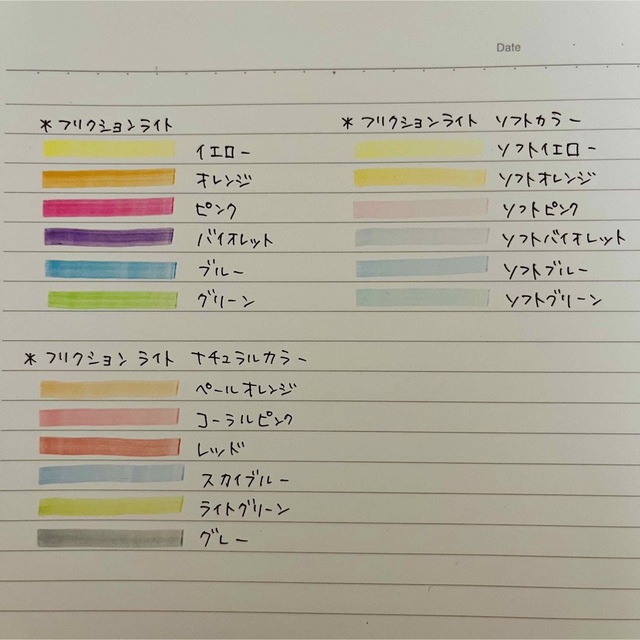 Date
*フリクションライト
イエロー
オレンジ
ピンク
バイオレット
ブルー
グリーン
*フリクションライト ソフトカラー
ソフトイエロー
ソフトオレンジ
ソフトピンク
ソフトバイオレット
ソフトブルー
ソフトグリーン
*フリクションライト ナチュラルカラー
ペールオレンジ
コーラルピンク
レッド
スカイブルー
ライトグリーン
グレー